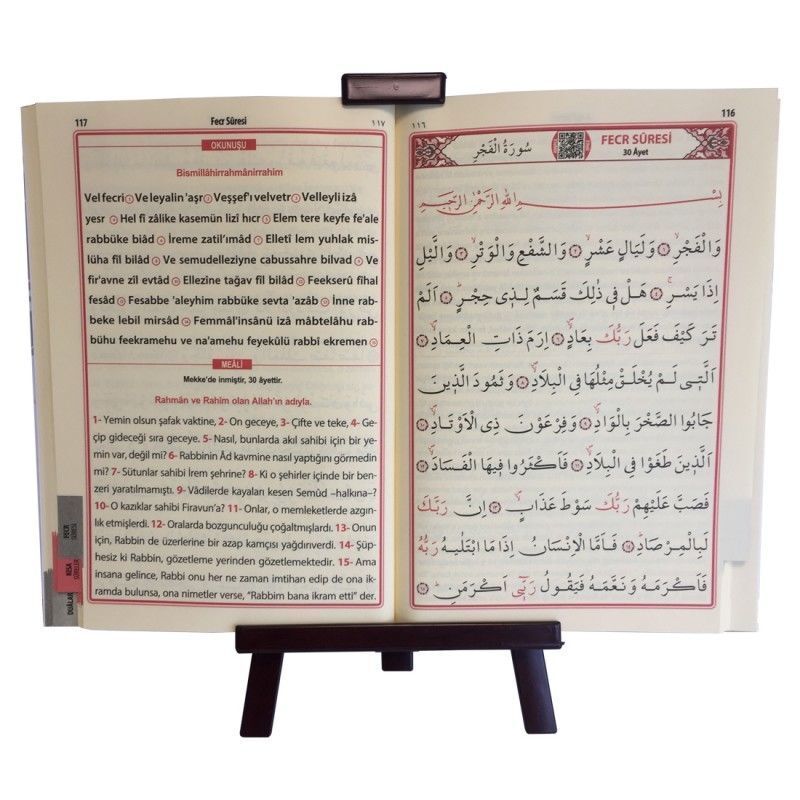 117 Fecr Sûresi ١١٧
OKUNUŞU
Bismillâhirrahmânirrahim
Vel fecri ① Ve leyalin 'aşr ② Veşşef'ı velvetr ③ Velleyli izâ
yesr ④ Hel fî zâlike kasemün lizî hıcr ⑤ Elem tere keyfe fe'ale
rabbüke biâd ⑥ İreme zatil'ımâd ⑦ Elletî lem yuhlak mis-
lüha fîl bilâd ⑧ Ve semudelleziyne cabussahre bilvad ⑨ Ve
fir'avne zîl evtâd ⑩ Ellezîne tağav fîl bilâd ⑪ Feekserû fîhal
fesâd ⑫ Fesabbe 'aleyhim rabbüke sevta 'azâb ⑬ İnne rab-
beke lebil mirsâd ⑭ Femmâl'insânü izâ mâbtelâhu rab-
bühu feekramehu ve na'amehu feyekûlü rabbî ekremen ⑮
MEÂLİ
Mekke'de inmiştir, 30 âyettir.
Rahmân ve Rahîm olan Allah'ın adıyla.
1- Yemin olsun şafak vaktine, 2- On geceye, 3- Çifte ve teke, 4- Ge-
çip gideceği sıra geceye. 5- Nasıl, bunlarda akıl sahibi için bir ye-
min var, değil mi? 6- Rabbinin Âd kavmine nasıl yaptığını görmedin
mi? 7- Sütunlar sahibi İrem şehrine? 8- Ki o şehirler içinde bir ben-
zeri yaratılmamıştı. 9- Vâdilerde kayaları kesen Semûd –halkına–?
10- O kazıklar sahibi Firavun'a? 11- Onlar, o memleketlerde azgın-
lık etmişlerdi. 12- Oralarda bozgunculuğu çoğaltmışlardı. 13- Onun
için, Rabbin de üzerlerine bir azap kamçısı yağdırıverdi. 14- Şüp-
hesiz ki Rabbin, gözetleme yerinden gözetlemektedir. 15- Ama
insana gelince, Rabbi onu her ne zaman imtihan edip de ona ik-
ramda bulunsa, ona nimetler verse, "Rabbim bana ikram etti" der.
FECR
SÛRESİ
KISA
SÛRELER
DUALAR
١١٦ 116
سُورَةُ الْفَجْرِ FECR SÛRESİ
30 Âyet
بِسْمِ اللهِ الرَّحْمٰنِ الرَّحِيمِ
وَالْفَجْرِۙ ﴿١﴾ وَلَيَالٍ عَشْرٍۙ ﴿٢﴾ وَالشَّفْعِ وَالْوَتْرِۙ ﴿٣﴾ وَالَّيْلِ
اِذَا يَسْرِۚ ﴿٤﴾ هَلْ فِى ذٰلِكَ قَسَمٌ لِذِى حِجْرٍۜ ﴿٥﴾ اَلَمْ
تَرَ كَيْفَ فَعَلَ رَبُّكَ بِعَادٍۙ ﴿٦﴾ اِرَمَ ذَاتِ الْعِمَادِۙ ﴿٧﴾
اَلَّتِى لَمْ يُخْلَقْ مِثْلُهَا فِى الْبِلَادِۙ ﴿٨﴾ وَثَمُودَ الَّذِينَ
جَابُوا الصَّخْرَ بِالْوَادِۙ ﴿٩﴾ وَفِرْعَوْنَ ذِى الْاَوْتَادِۙ ﴿١٠﴾
اَلَّذِينَ طَغَوْا فِى الْبِلَادِۙ ﴿١١﴾ فَاَكْثَرُوا فِيهَا الْفَسَادَۙ ﴿١٢﴾
فَصَبَّ عَلَيْهِمْ رَبُّكَ سَوْطَ عَذَابٍۙ ﴿١٣﴾ اِنَّ رَبَّكَ
لَبِالْمِرْصَادِۜ ﴿١٤﴾ فَاَمَّا الْاِنْسَانُ اِذَا مَا ابْتَلٰيهُ رَبُّهُ
فَاَكْرَمَهُ وَنَعَّمَهُ فَيَقُولُ رَبِّٓى اَكْرَمَنِۜ ﴿١٥﴾